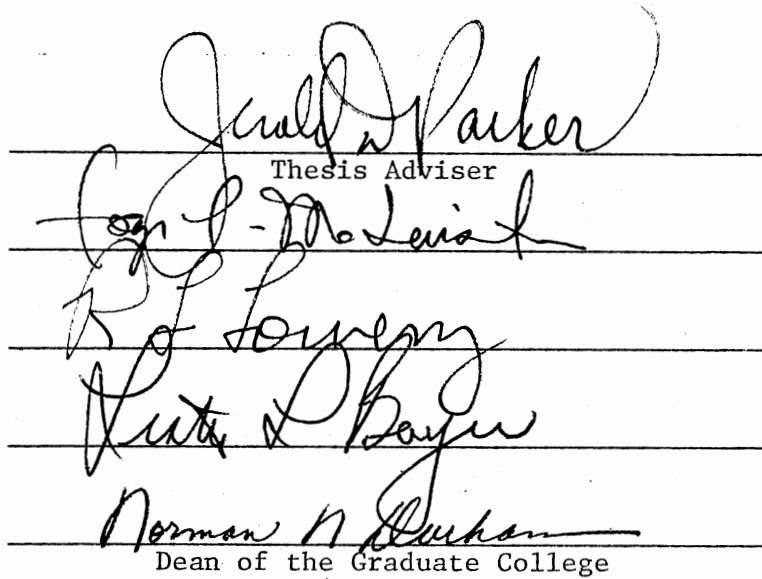 Jerald D Parker
Thesis Adviser
R L Lowery
L Boyer
Norman N Durham
Dean of the Graduate College